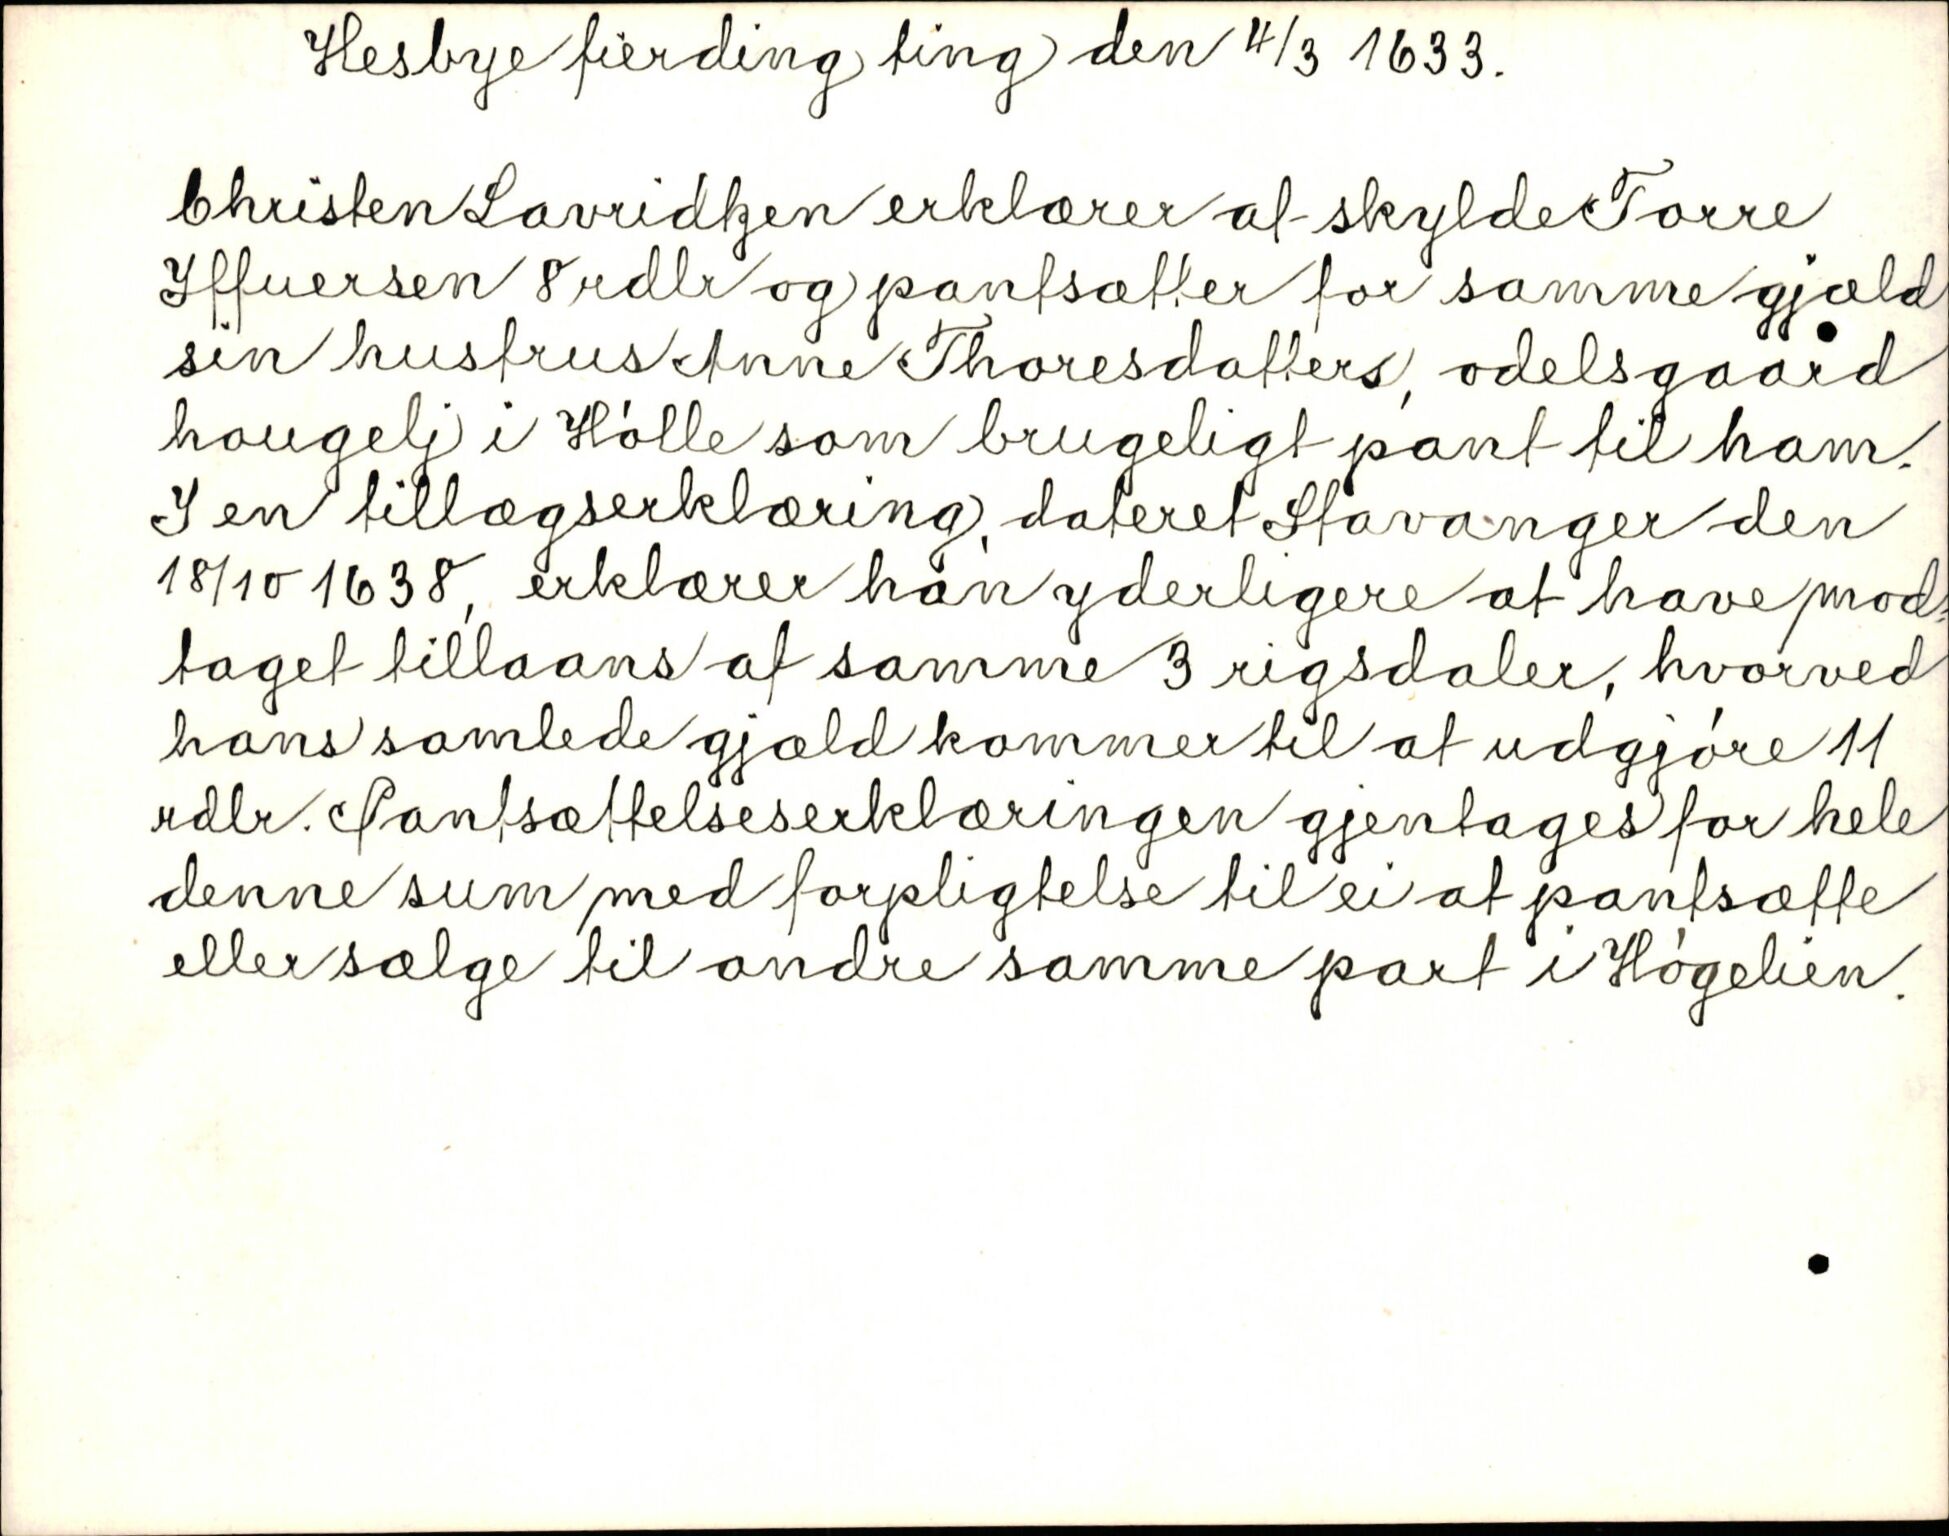 Hesbye fierding ting den 4/3 1633.
Christen Lavridtzen erklærer at skylde Torre
Iffuersen 8 rdlr og pantsætter for samme gjæld
sin hustrus Anne Thoresdatters, odelsgaard
hougelj i Hólle som brugeligt pant til ham.
I en tillægserklæring, dateret Stavanger den
18/10 1638, erklærer han yderligere at have mod-
taget tillaans af samme 3 rigsdaler, hvorved
hans samlede gjæld kommer til at udgjóre 11
rdlr. Pantsættelseserklæringen gjentages for hele
denne sum med forpligtelse til ei at pantsætte
eller sælge til andre samme part i Hógelien.